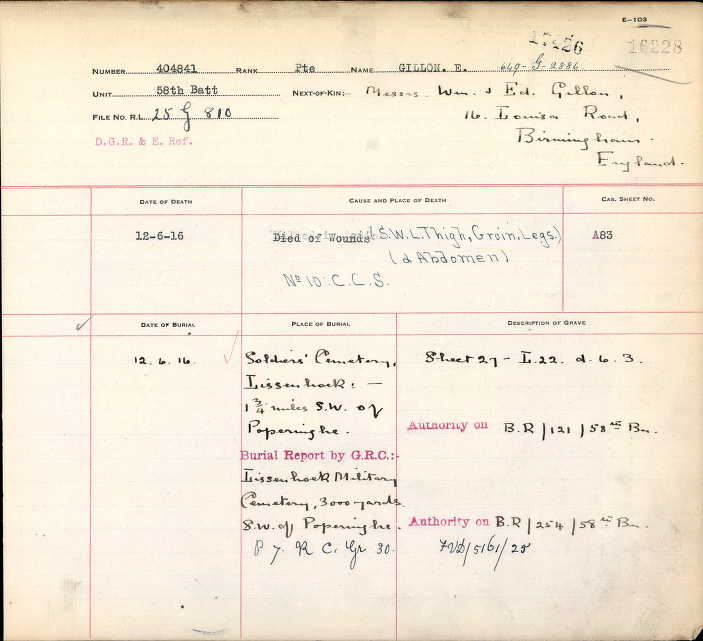 E-103
16228
NUMBER 404841 RANK Pte NAME GILLON. E. 649-G-2886
UNIT 58th Batt NEXT-OF-KIN:- Messrs. Wm. & Ed. Gillon,
FILE NO. R.L. 25 G 810 16. Louisa Road,
D.G.R. & E. Ref. Birmingham.
England.
DATE OF DEATH CAUSE AND PLACE OF DEATH CAS. SHEET NO.
12-6-16 Died of Wounds (S.W.L. Thigh, Groin, Legs.) A83
(& Abdomen)
No 10. C.C.S.
DATE OF BURIAL PLACE OF BURIAL DESCRIPTION OF GRAVE
12.6.16. Soldiers' Cemetery, Sheet 27 - L.22. d. 6. 3.
Lissenhoek: -
1 3/4 miles S.W. of
Poperinghe. Authority on B.R/121/58th Bn.
Burial Report by G.R.C:-
Lissenhoek Military
Cemetery, 3000 yards
S.W. of Poperinghe. Authority on B.R/254/58th Bn.
P 7. R C. Gr 30.